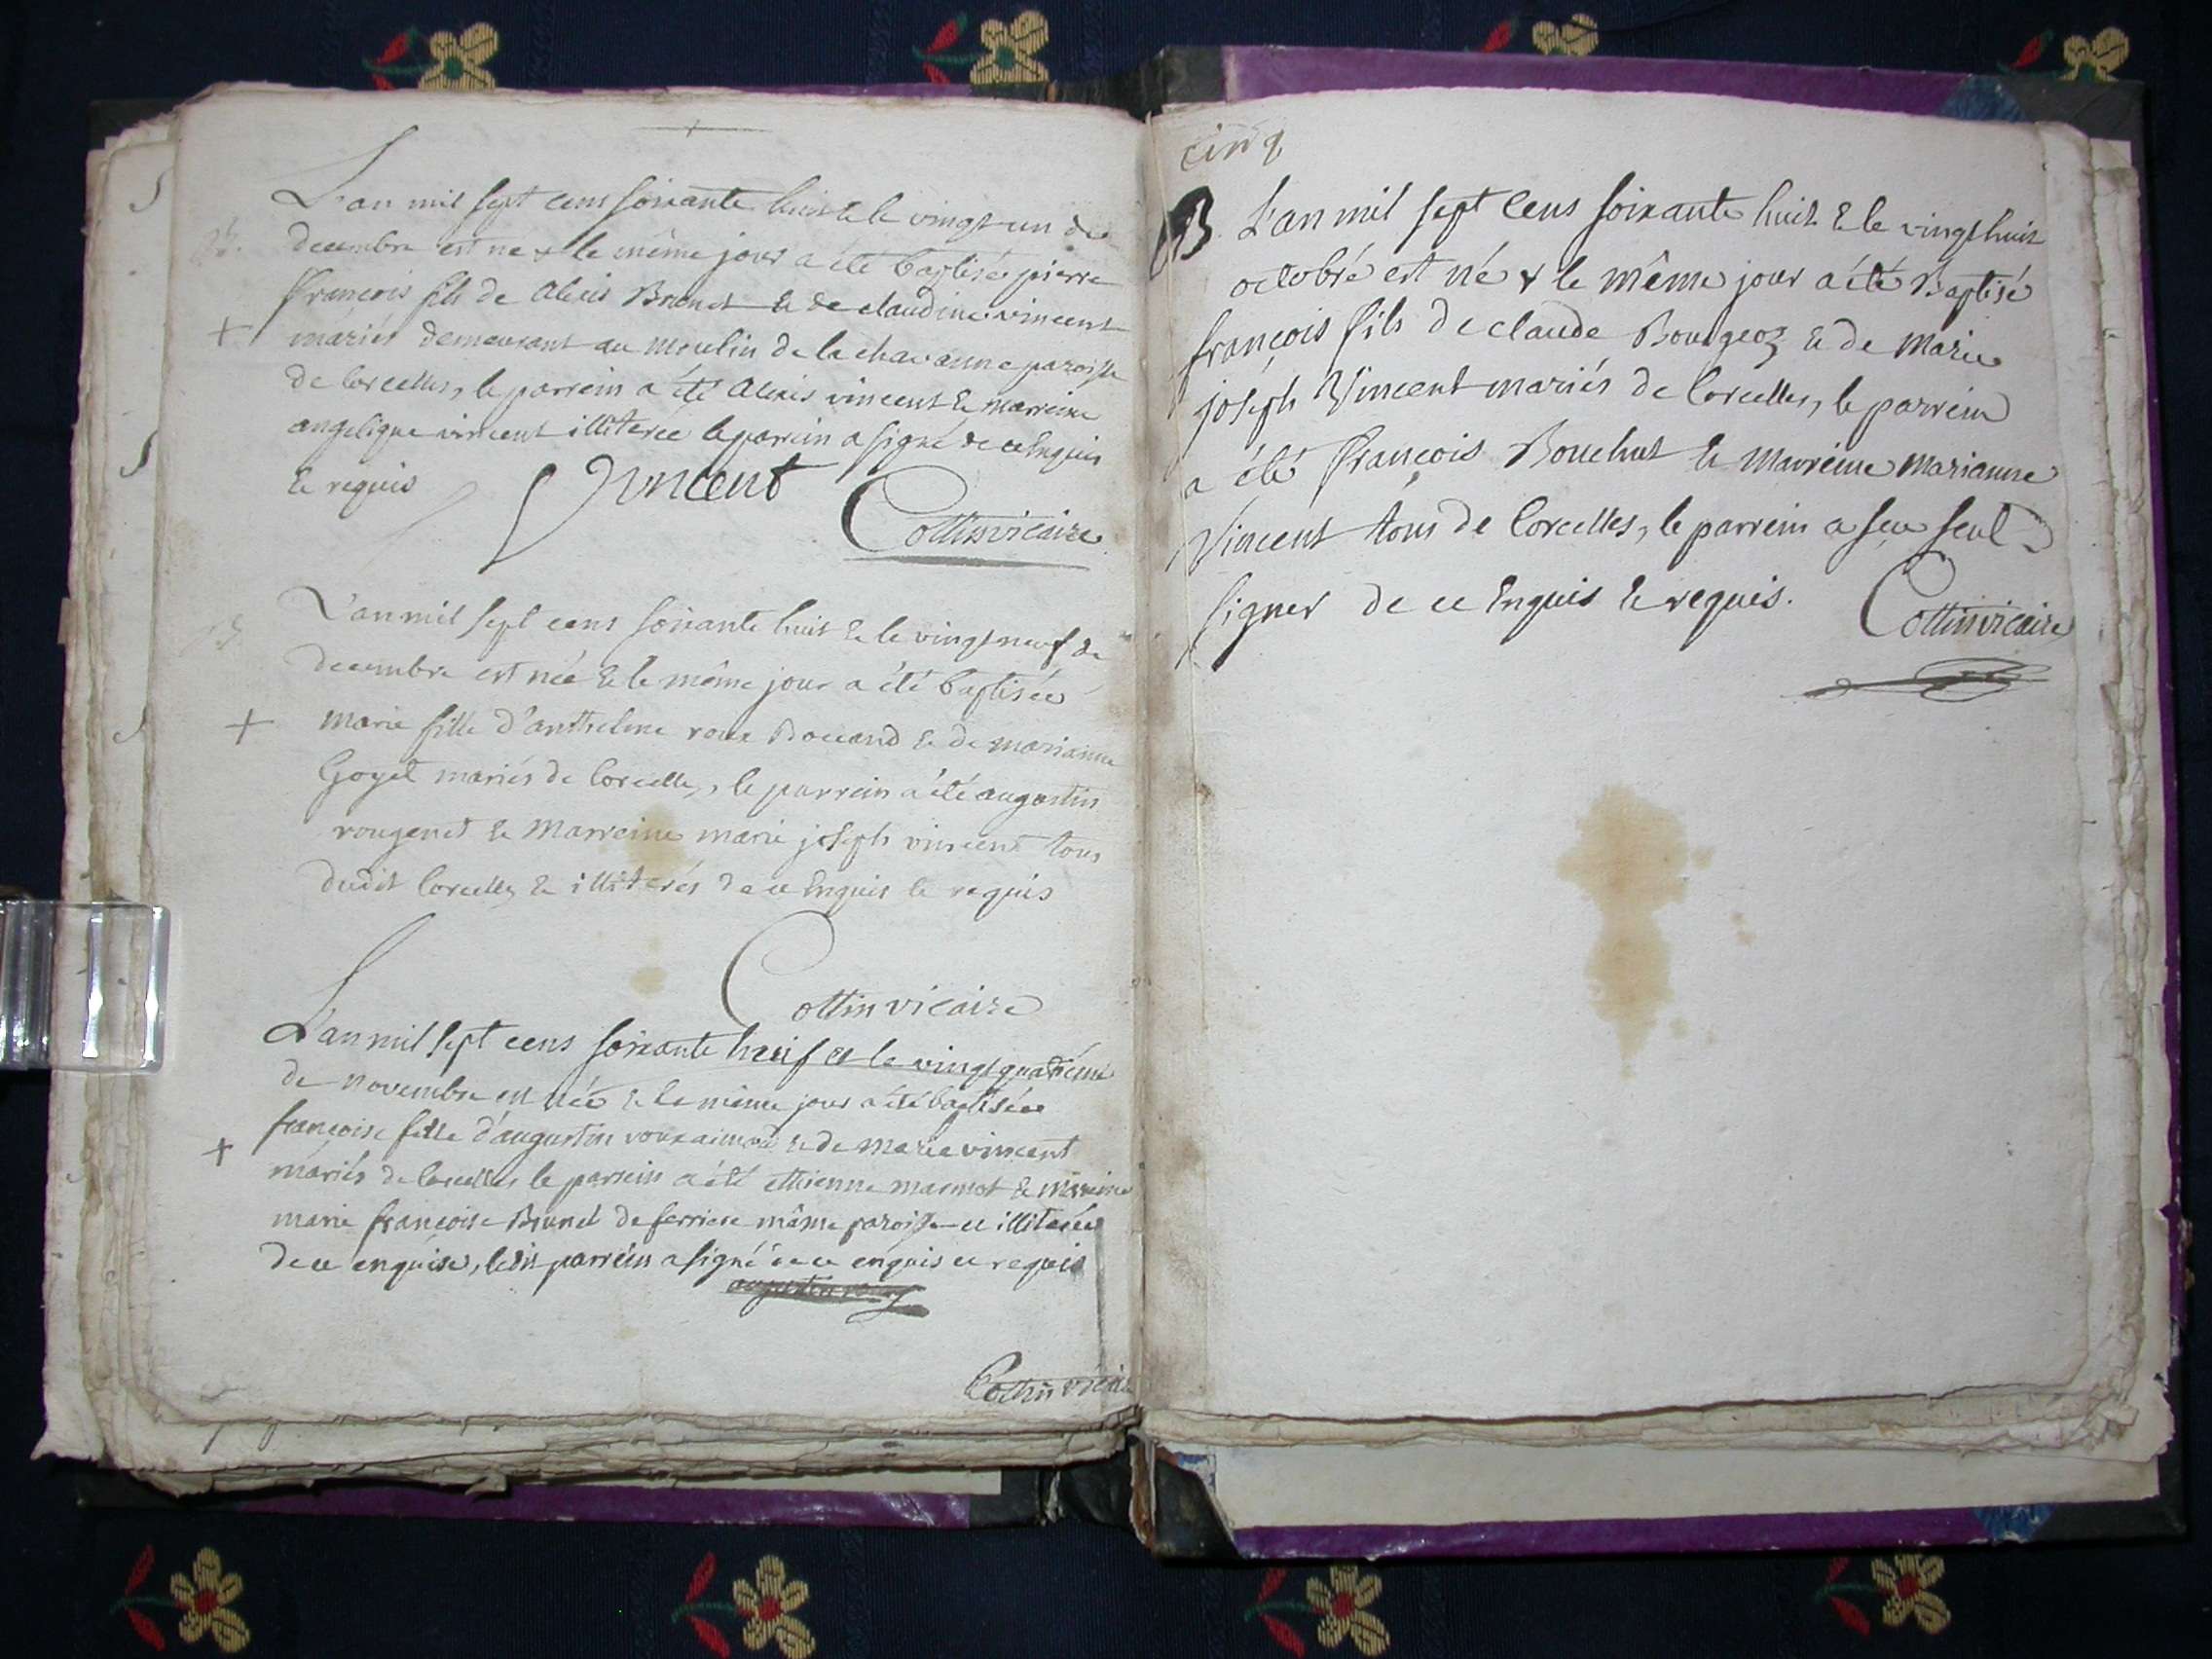 L'an mil sept cens soixante huit & le vingt un de
decembre est né & le même jour a été baptisé pierre
françois fils de Alexis Brunet & de claudine vincent
mariés demeurant au moulin de la chavanne paroisse
de Corcelles, le parrein a été Alexis vincent & marreine
angelique vincent illiterée le parrein a signé de ce Enquis
& requis
Vincent
Cottin vicaire
L'an mil sept cens soixante huit & le vingt neuf de
decembre est née & le même jour a été baptisée
marie fille d'anthelme roux & de marianne
Goyet mariés de Corcelles, le parrein a été augustin
rougenet & Marreine marie joseph vincent tous
dudit Corcelles & illiterés de ce Enquis & requis
Cottin vicaire
L'an mil sept cens soixante huit & le vingt quatrieme
de novembre est née & le même jour a été baptisée
françoise fille d'augustin & de marie vincent
mariés de Corcelles le parrein a été ethienne marmot & marreine
marie françoise Brunet de ferriere même paroisse et illiterée
de ce enquise, ledit parrein a signé de ce enquis et requis
Cottin vicaire
cinq
B L'an mil sept Cens soixante huit & le vingt huit
octobre est né & le même jour a été Baptisé
françois fils de claude Bourgeoz & de Marie
joseph Vincent mariés de Corcelles, le parrein
a été françois Bouchut & Marreine marianne
Vincent tous de Corcelles, le parrein a sçu seul
signer de ce Enquis & requis.
Cottin vicaire